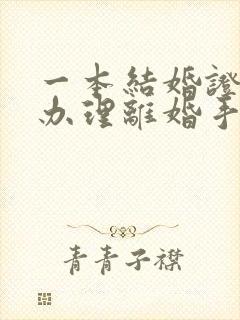 一本結婚證
办理離婚手
青青子襟